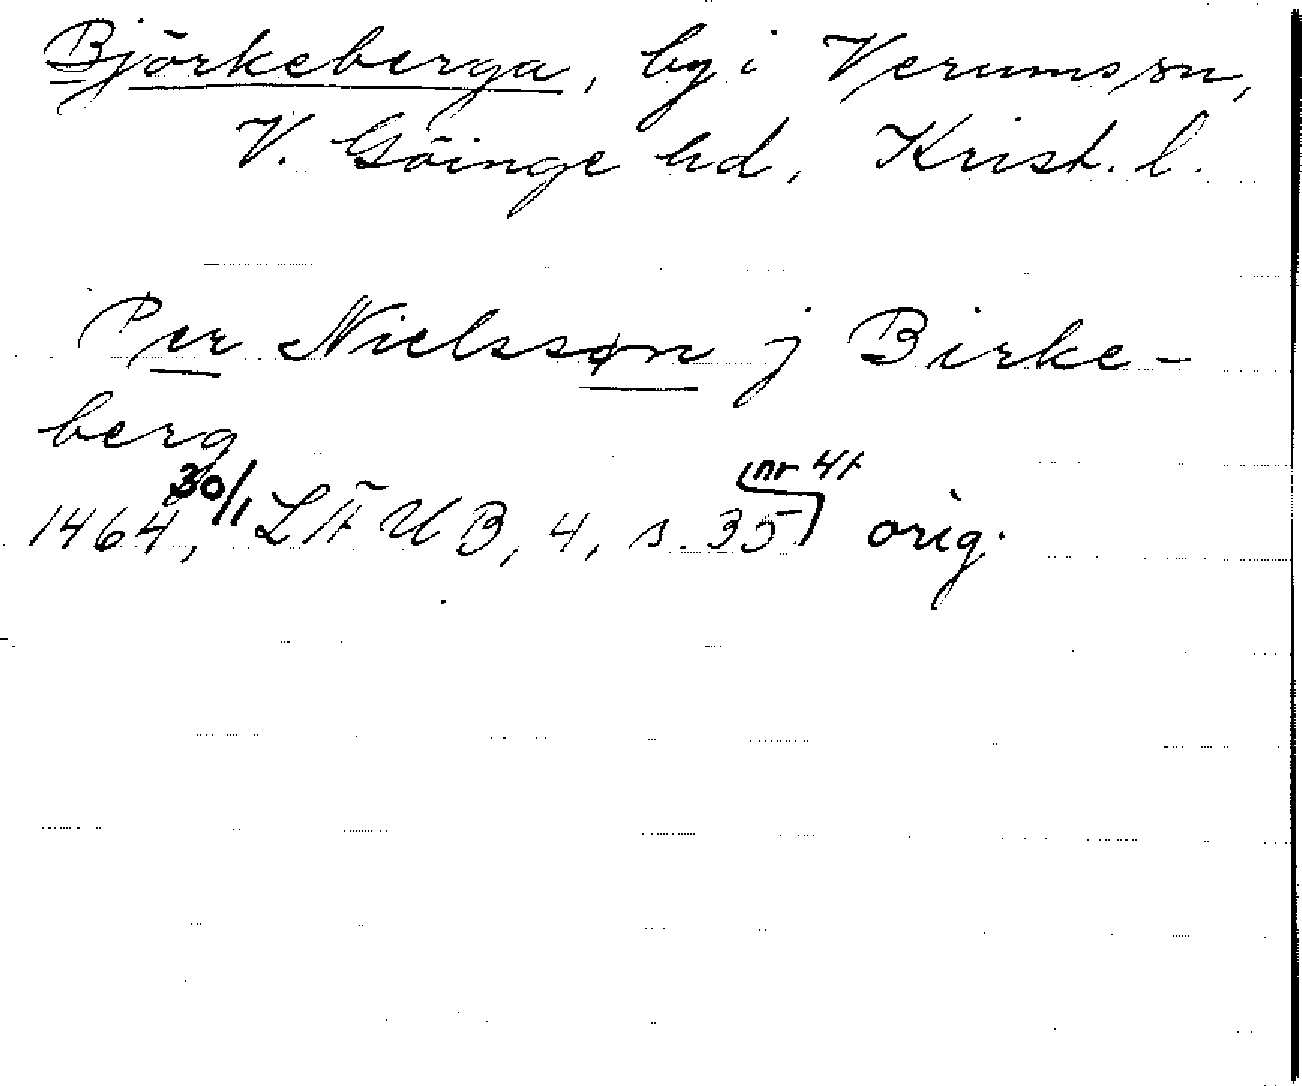 Björkeberga, by i Verums sn,
V. Göinge hd, Krist. l.
Per Nielssøn j Birke-
berg
1464, 30/1 LÄUB, 4, s. 35 nr 41 orig.